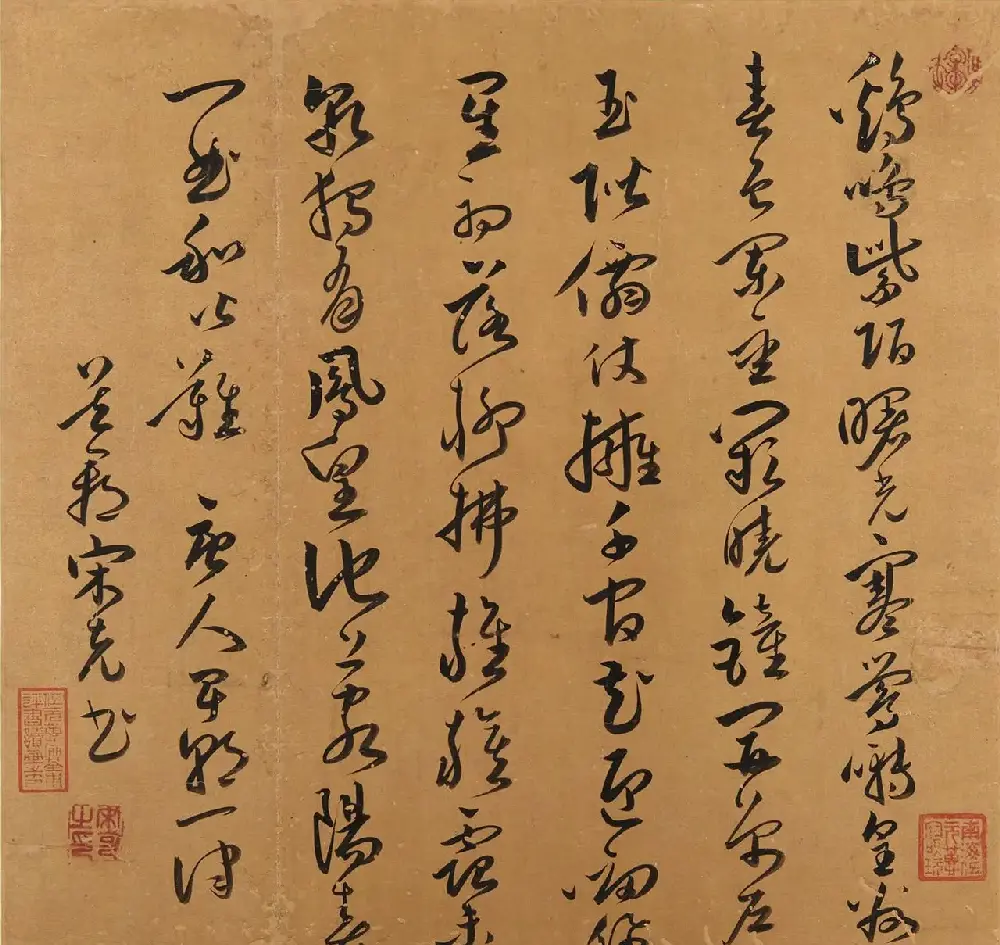 鷄鳴紫陌曙光寒鶯囀皇州
春色闌金闕曉鐘開萬戶
玉階僊仗擁千官花迎劍佩
星初落柳拂旌旗露未
乾獨有鳳皇池上客陽春
一曲和皆難 唐人早朝一律
宋克書